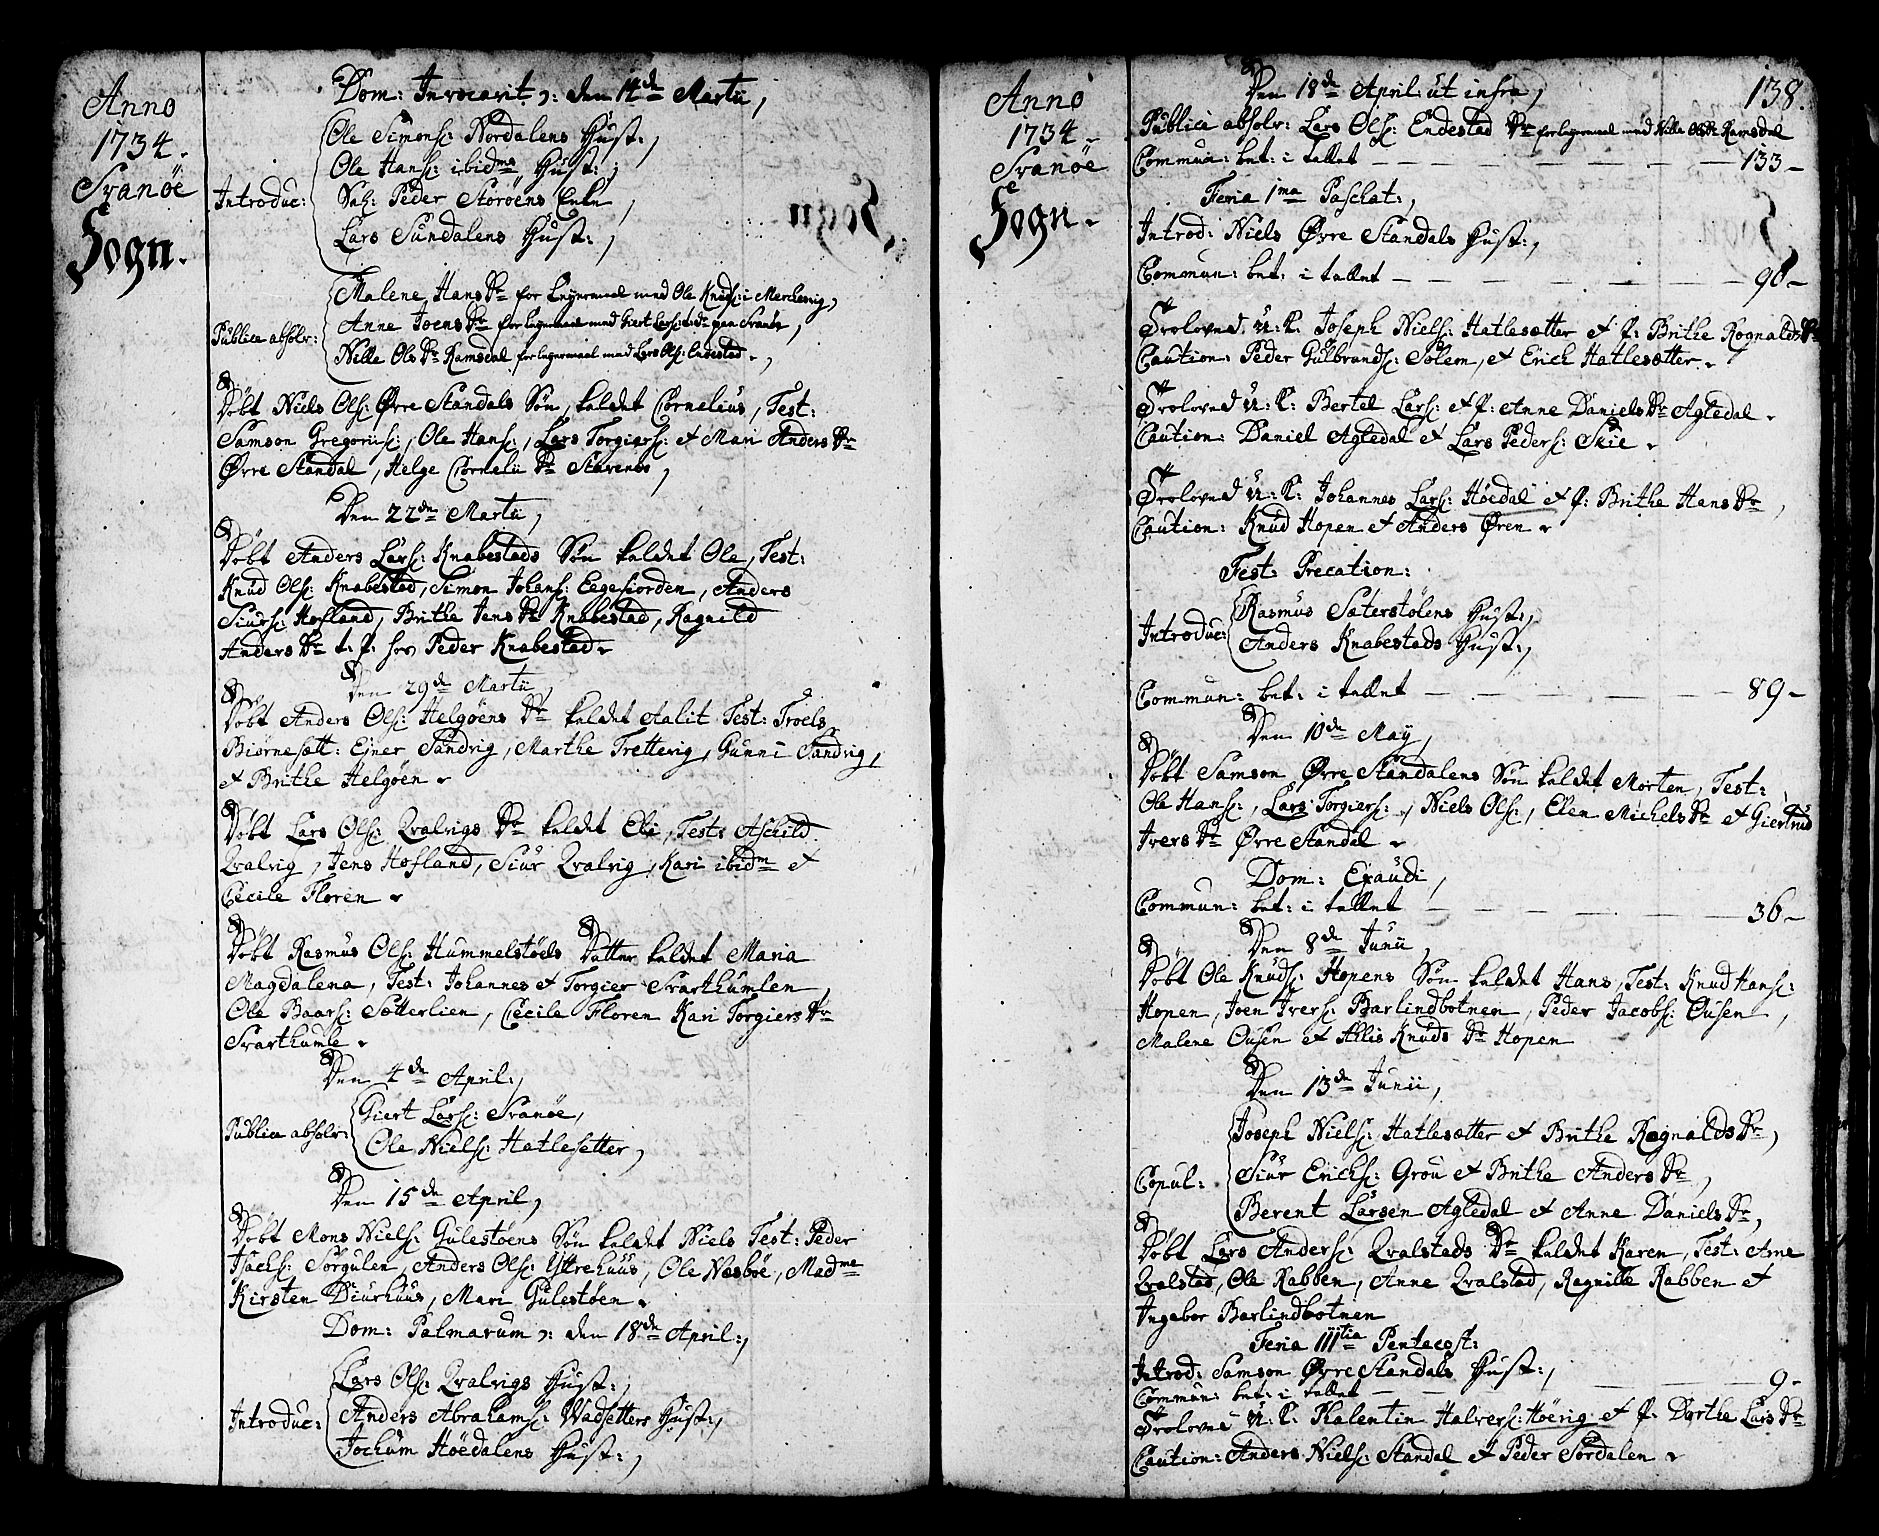 Anno
1734.
Svanöe
Sogn.
Dom: Invocavit ɔ: den 14de Martii,
Introduc:
Ole Simons: Nordalens Hust:,
Ole Hans: ibidma Hust:,
Sal: Peder Storöens Enke,
Lars Sundalens Hust:,
Publice absolv:
Malene Hans Dr for Leyermaal med Ole Knuds: i Merchevig,
Anne Joens Dr for legermaal med Giert Lars: paa Svanöe,
Nille Ols Dr Ramsdal for legermaal med Lars Ols: Endestad.,
Döbt Niels Ols: Øvre Standals Sön kaldet Cornelius, Test:
Samson Gregorius:, Ole Hans:, Lars Torgiers: et Mari Anders Dr
Øvre Standal, Helge Cornelii Dr Stavenes,
Den 22de Martii,
Döbt Anders Lars: Knabestads Sön kaldet Ole, Test:
Knud Ols: Knabestad, Simon Johans: Eegefiorden, Anders
Siurs: Hofland, Brithe Jens Dr Knabestad, Ragnild
Anders Dr t. p. hos Peder Knabestad.
Den 29de Martii,
Döbt Anders Ols: Helgöens Dr kaldet Aalit Test: Troels
Biörnesætt: Ejner Sandvig, Marthe Trettevig, Gunni Sandvig,
et Brithe Helgöen.
Döbt Lars Ols: Qvalvigs Dr kaldet Eli, Test: Aschild
Qvalvig, Jens Hofland, Siur Qvalvig, Kari ibidm et
Cecile Floren.
Döbt Rasmus Ols: Hummelstöels Datter kaldet Maria
Magdalena, Test: Johannes et Torgier Svarthumlen,
Ole Baars: Sætterlien, Cecile Floren Kari Torgiers Dr
Svarthumle.
Den 4de April:,
Publice absolv:
Giert Lars: Svanöe,
Ole Niels: Hatlesetter,
Den 15de April,
Döbt Mons Niels: Gulestöens Sön kaldet Niels Test: Peder
Isachs: Sörgulen, Anders Ols: Yttrehuus, Ole Næsböe, Madme
Kirsten Diurhuus, Mari Gulestöen.
Dom: Palmarum ɔ: den 18de April:,
Introduc:
Lars Ols: Qvalvigs Hust:,
Anders Abrahams: Vadsetters Hust:,
Jochum Höedalens Hust:,
138.
Anno
1734.
Svanöe
Sogn.
Den 18de April: ut infra,
Publice absolv: Lars Ols: Endestad for legermaal med Nille Ols Dr Ramsdal
Commun: bet: i tallet — 133-
Feria 1ma Paschat:,
Introd: Niels Øvre Standals Hust:,
Commun: bet: i tallet — 90-
Troloved U: K: Joseph Niels: Hatlesætter et p: Brithe Rognalds Dr
Caution: Peder Gulbrands: Solem, et Erich Hatlesætter.
Troloved U: K: Bertel Lars: et p: Anne Daniels Dr Agledal.
Caution: Daniel Agledal et Lars Peders: Skie.
Troloved U: K: Johannes Lars: Höedal et p: Brithe Hans Dr,
Caution: Knud Hopen et Anders Øren.
Fest: Precation:
Introduc:
Rasmus Sæterstölens Hust:,
Anders Knabestads Hust:,
Commun: bet: i tallet — 89-
Den 10de May,
Döbt Samson Øvre Standalens Sön kaldet Morten, Test:
Ole Hans:, Lars Torgiers:, Niels Ols:, Elen Michels Dr et Giertrud
Ivers Dr Øvre Standal.
Dom: Exaudi,
Commun: bet: i tallet — 36-
Den 8de Junii,
Döbt Ole Knuds: Hopens Sön kaldet Hans, Test: Knud Hans:
Hopen, Joen Ivers: Barlindbotnen, Peder Jacobs: Ousen,
Malene Ousen et Allis Knuds Dr Hopen
Den 13de Junii,
Copul:
Joseph Niels: Hatlesætter et Brithe Rognalds Dr,
Siur Erichs: Grou et Brithe Anders Dr,
Berent Larsen Agledal et Anne Daniels Dr,
Döbt Lars Anders: Qvalstads Dr kaldet Karen, Test: Arne
Qvalstad, Ole Rabben, Anne Qvalstad, Ragnille Rabben et
Ingebor Barlindbotnen
Feria IIItia Pentecost:
Introd: Samson Øvre Standals Hust:,
Commun: bet: i tallet — 9-
Troloved U: K: Phalentin Halvers: Höevig et p: Dorthe Lars Dr
Caution: Anders Niels: Standal et Peder Sördalen.